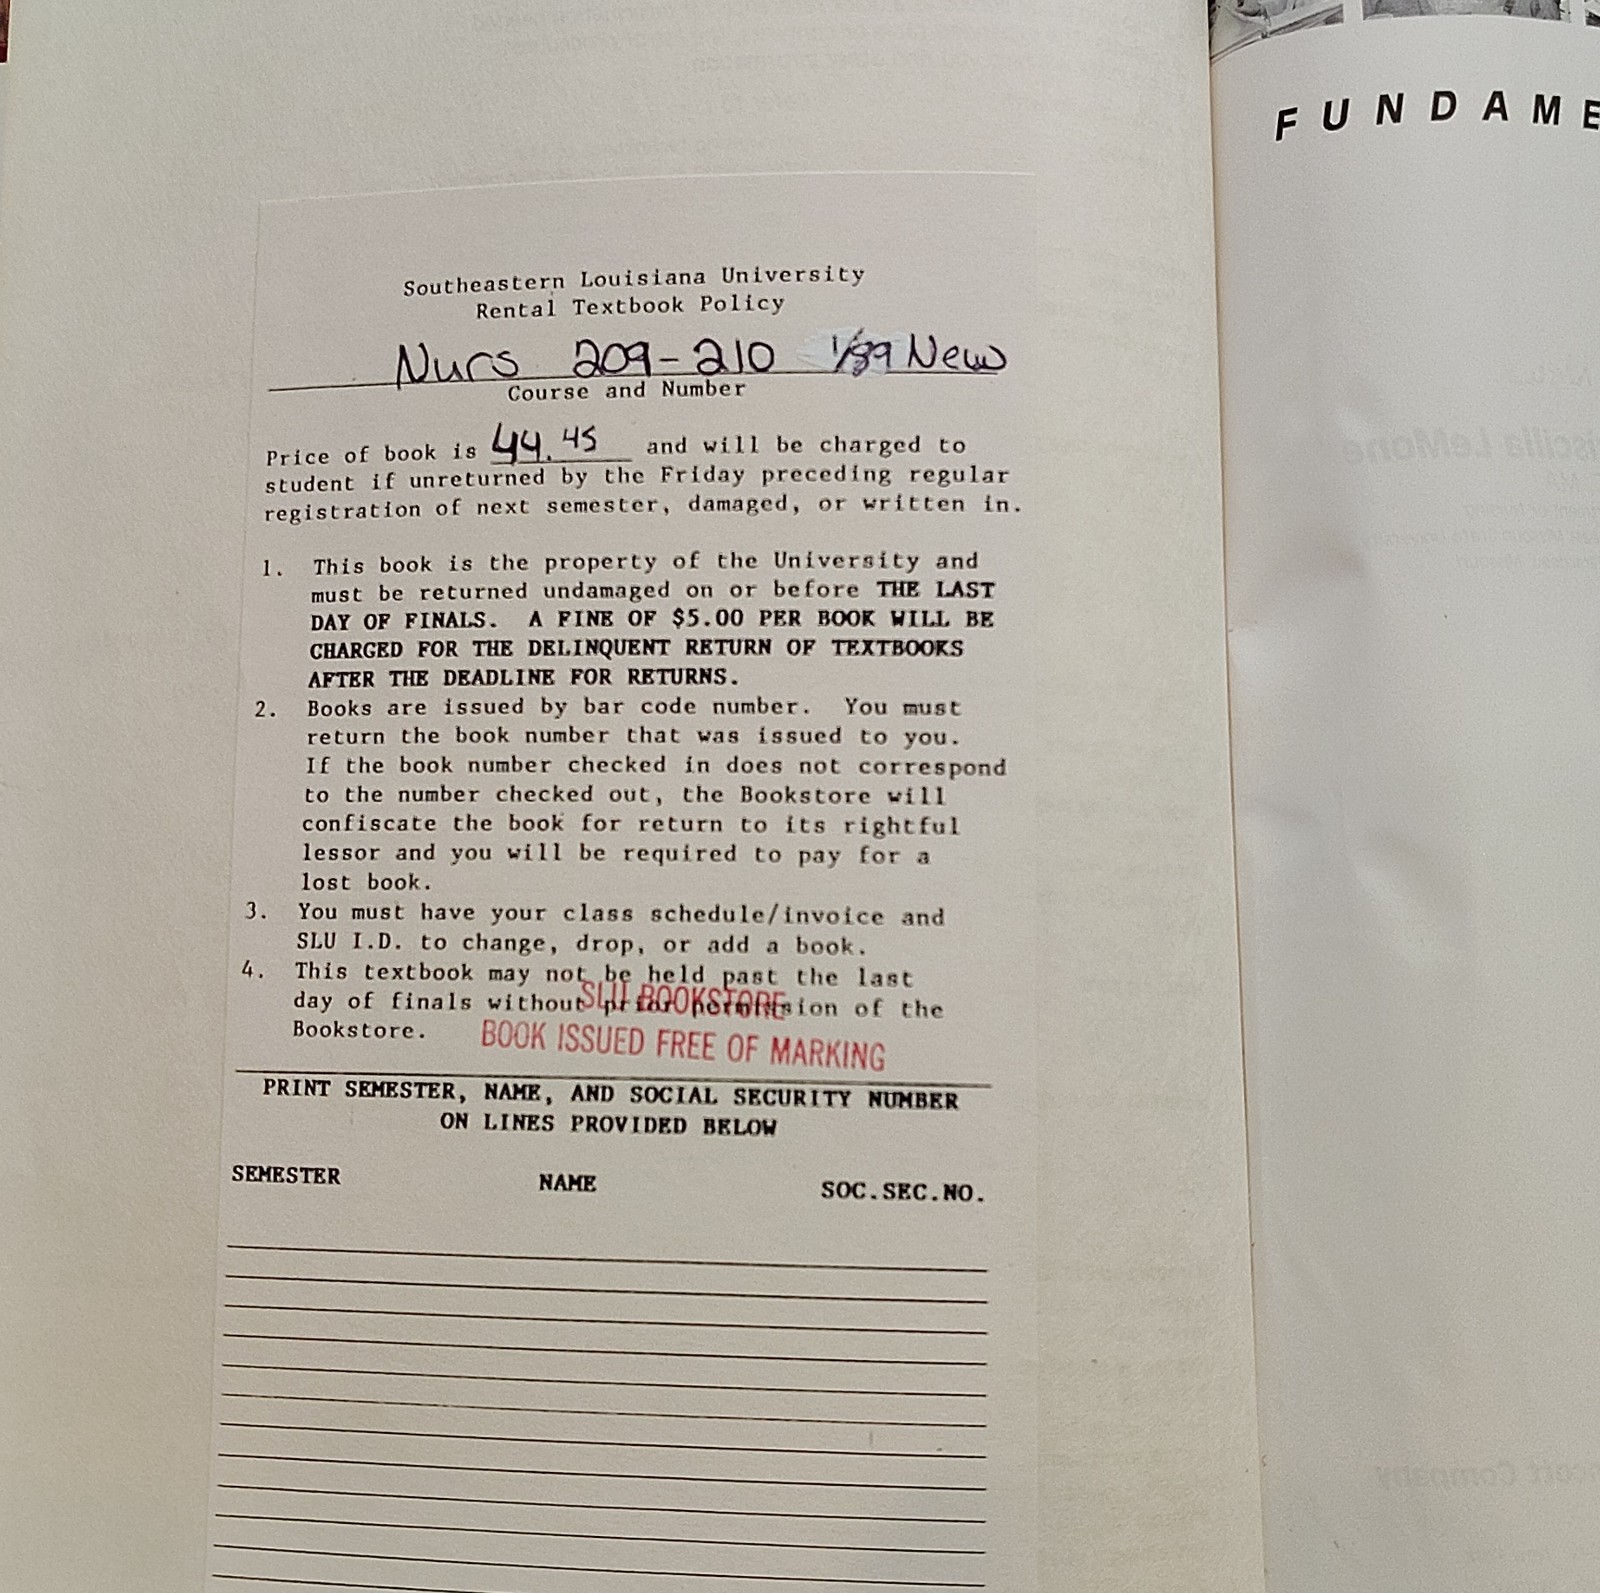 Southeastern Louisiana University
Rental Textbook Policy
Nurs 209-210 1/89 New
Course and Number
Price of book is 44.45 and will be charged to
student if unreturned by the Friday preceding regular
registration of next semester, damaged, or written in.
1. This book is the property of the University and
must be returned undamaged on or before THE LAST
DAY OF FINALS. A FINE OF $5.00 PER BOOK WILL BE
CHARGED FOR THE DELINQUENT RETURN OF TEXTBOOKS
AFTER THE DEADLINE FOR RETURNS.
2. Books are issued by bar code number. You must
return the book number that was issued to you.
If the book number checked in does not correspond
to the number checked out, the Bookstore will
confiscate the book for return to its rightful
lessor and you will be required to pay for a
lost book.
3. You must have your class schedule/invoice and
SLU I.D. to change, drop, or add a book.
4. This textbook may not be held past the last
day of finals without prior permission of the
Bookstore.
SLU BOOKSTORE
BOOK ISSUED FREE OF MARKING
PRINT SEMESTER, NAME, AND SOCIAL SECURITY NUMBER
ON LINES PROVIDED BELOW
SEMESTER NAME SOC.SEC.NO.
FUNDAME